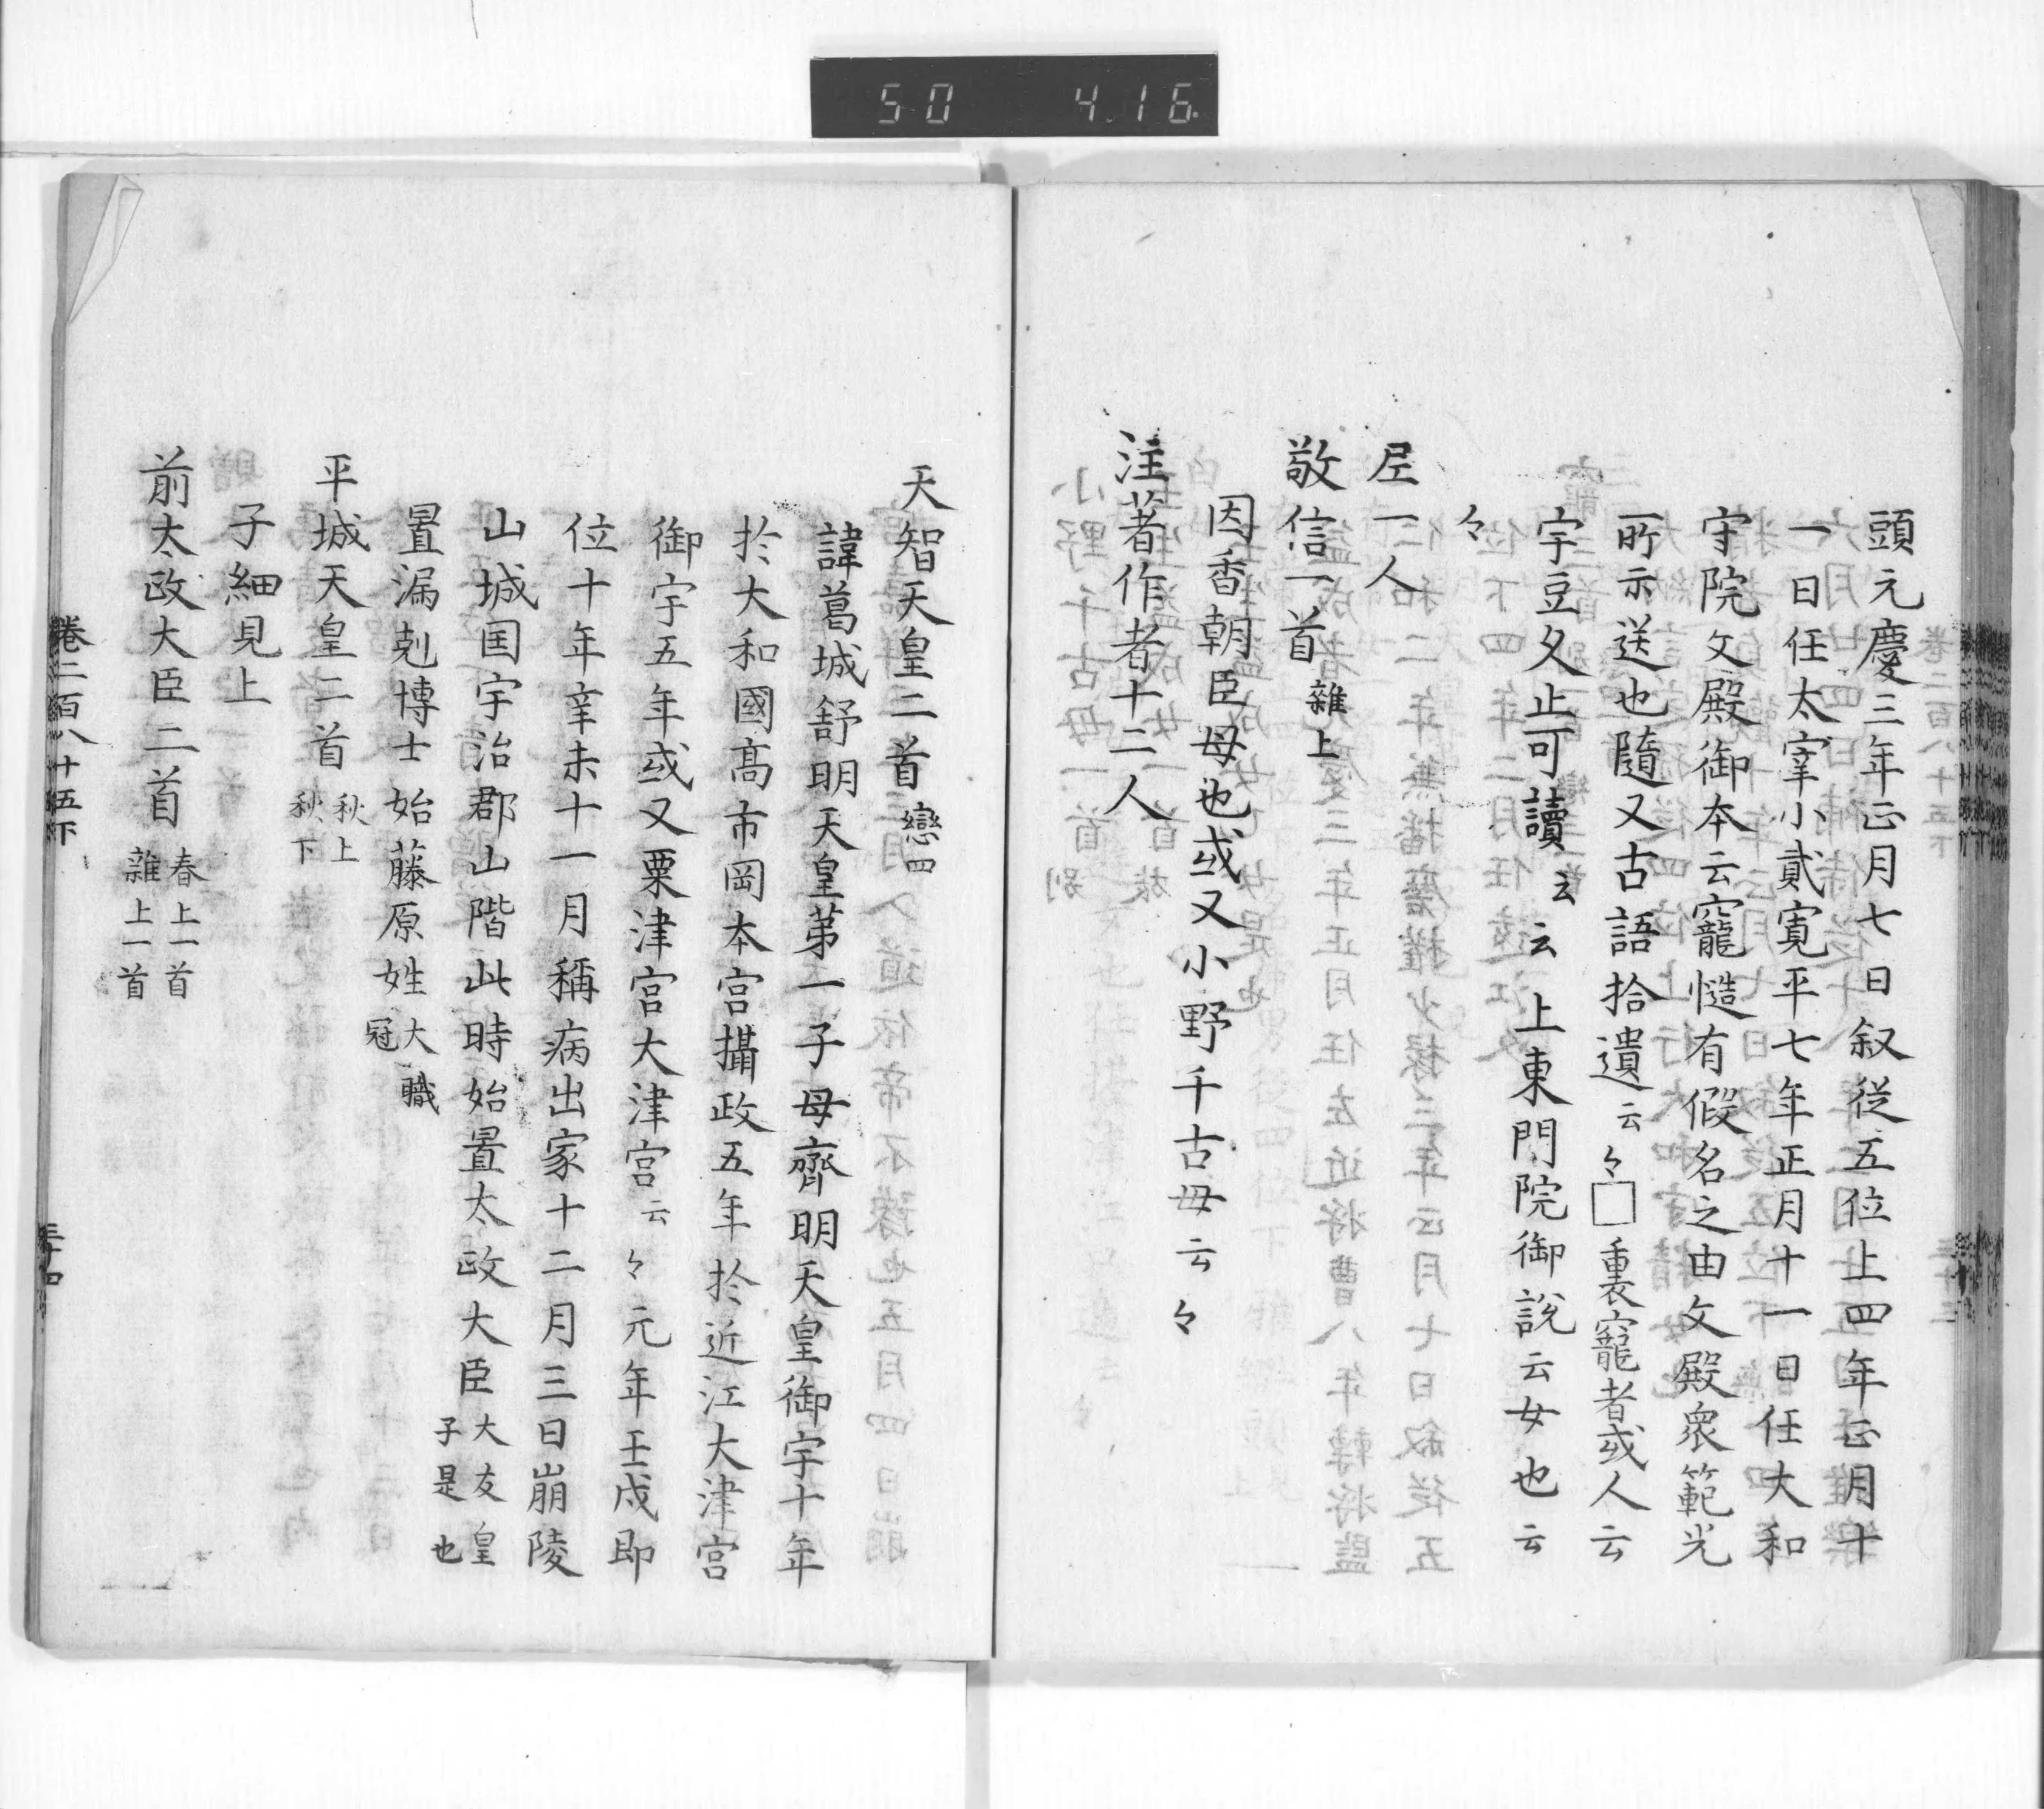 50 4.16
頭元慶三年正月七日叙従五位上四年正月十
一日任太宰小貳寛平七年正月十一日任大和
守院文殿御本云寵愷有假名之由文殿衆範光
所示送也隨又古語拾遺云々□重裏寵者或人云
宇豆久止可讀云云上東門院御説云女也云
々
尼一人
敬信一首 雜上
因香朝臣母也或又小野千古母云々
注著作者十二人
天智天皇二首 戀四
諱葛城舒明天皇第一子母齊明天皇御宇十年
於大和國高市岡本宮攝政五年於近江大津宮
御宇五年或又粟津宮大津宮云々元年壬戌即
位十年辛未十一月稱病出家十二月三日崩陵
山城国宇治郡山階此時始置太政大臣 大友皇子是也
置漏剋博士始藤原姓 大職冠
平城天皇二首 秋上 秋下
子細見上
前太政大臣二首 春上一首 雜上一首
卷二百八十五下
三十四